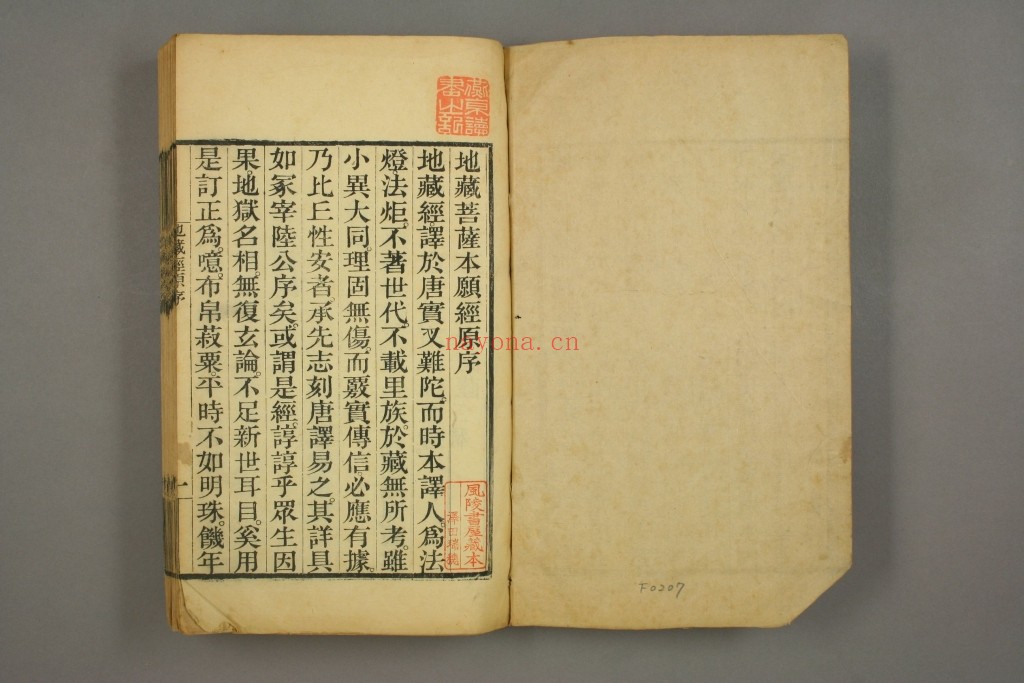 地藏菩薩本願經原序
地藏經譯於唐實叉難陀。而時本譯人。爲法
燈法炬。不著世代。不載里族。於藏無所考。雖
小異大同。理固無傷。而覈實傳信。必應有據。
乃比丘性安者。承先志刻唐譯易之。其詳具
如冢宰陸公序矣。或謂是經。諄諄乎眾生因
果。地獄名相。無復玄論。不足新世耳目。奚用
是訂正爲。噫。布帛菽粟。平時不如明珠。饑年
地藏經原序
一
風陵書屋藏本
nayona.cn
F0207